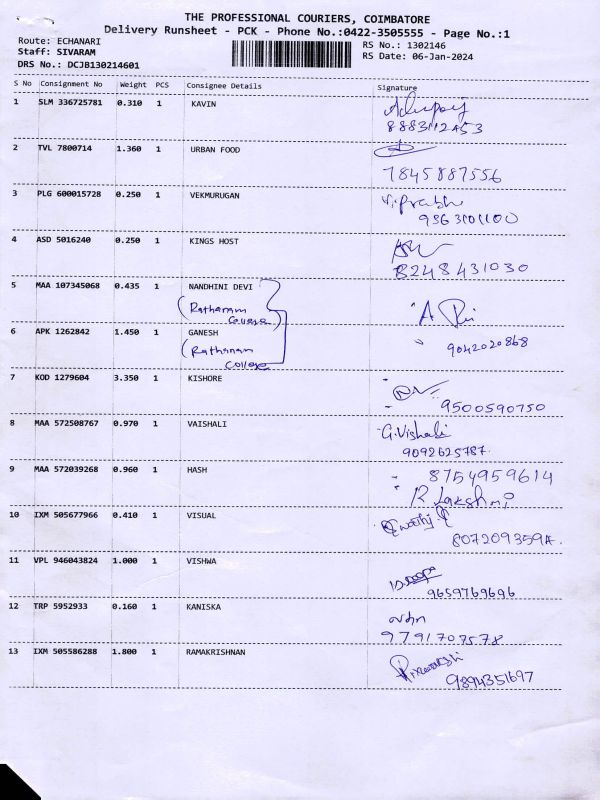 THE PROFESSIONAL COURIERS, COIMBATORE
Delivery Runsheet - PCK - Phone No.:0422-3505555 - Page No.:1
Route: ECHANARI
Staff: SIVARAM
DRS No.: DCJB130214601
RS No.: 1302146
RS Date: 06-Jan-2024
S No Consignment No Weight PCS Consignee Details Signature
1 SLM 336725781 0.310 1 KAVIN
2 TVL 7800714 1.360 1 URBAN FOOD
7845887556
3 PLG 600015728 0.250 1 VEKMURUGAN
9363101100
4 ASD 5016240 0.250 1 KINGS HOST
8248431030
5 MAA 107345068 0.435 1 NANDHINI DEVI
6 APK 1262842 1.450 1 GANESH
9042020868
(Rathanam
College
7 KOD 1279604 3.350 1 KISHORE
9500590750
8 MAA 572508767 0.970 1 VAISHALI
G.Vishali
9092625787.
9 MAA 572039268 0.960 1 HASH
8754959614
R Lakshmi
10 IXM 505677966 0.410 1 VISUAL
11 VPL 946043824 1.000 1 VISHWA
9659769696
12 TRP 5952933 0.160 1 KANISKA
9791707578
13 IXM 505586288 1.800 1 RAMAKRISHNAN
9894351697